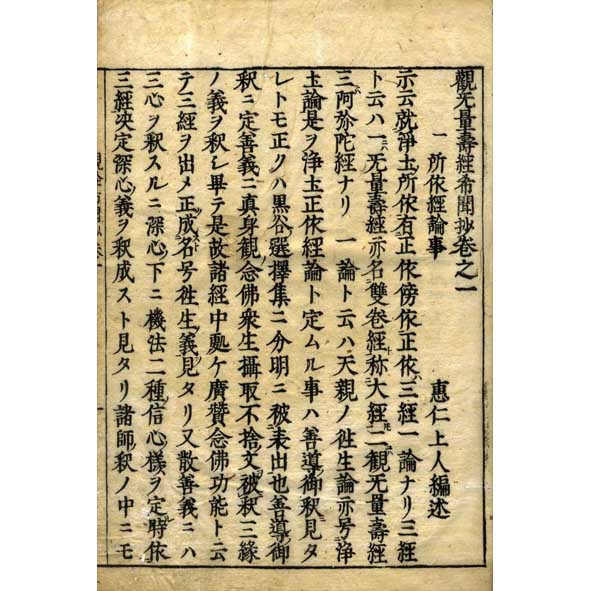 觀无量壽經希聞抄卷之一
一 所依經論事 惠仁上人編述
示云就淨土所依有正依傍依正依三經一論ナリ三經
ト云ハ一无量壽經亦名雙卷經称大經二觀无量壽經
三阿弥陀經ナリ 一論ト云ハ天親ノ徃生論亦号淨
土論是ヲ淨土正依經論ト定ムル事ハ善導御釈見タ
レトモ正クハ黒谷選擇集ニ分明ニ被表出也善導御
釈ニ定善義ニ真身観念佛衆生攝取不捨文被釈三縁
ノ義ヲ釈シ畢テ是故諸經中處ケ廣贊念佛功能ト云
テ三經ヲ出メ正成名号徃生義見タリ又散善義ニハ
三心ヲ釈スルニ深心下ニ機法二種信心様ヲ定時依
三經决定深心義ヲ釈成スト見タリ諸師釈ノ中ニモ